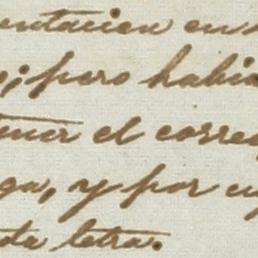 entacion en
; pero habia
tener el corre
ga, y por
de letra.